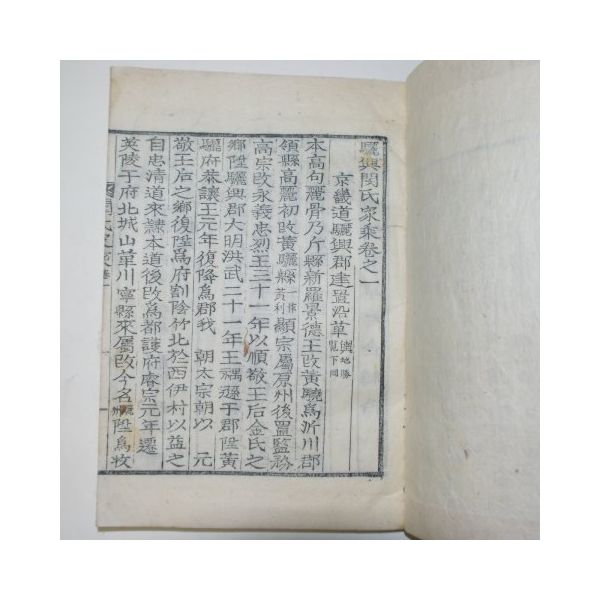 驪興閔氏家乘卷之一
京畿道驪興郡建置沿革 輿地勝覽下同
本高句麗骨乃斤縣新羅景德王改黃驍爲沂川郡
領縣高麗初改黃驪縣 一作黃利 顯宗屬原州後置監務
高宗改永義忠烈王三十一年以順敬王后金氏之
鄉陞驪興郡大明洪武二十一年王禑遜于郡陞黃
驪府恭讓王元年復降爲郡我 朝太宗朝以 元
敬王后之鄉復陞爲府割陰竹北於西伊村以益之
自忠清道來隷本道後改爲都護府睿宗元年遷
英陵于府北城山革川寧縣來屬改今名 驪州 陞爲牧